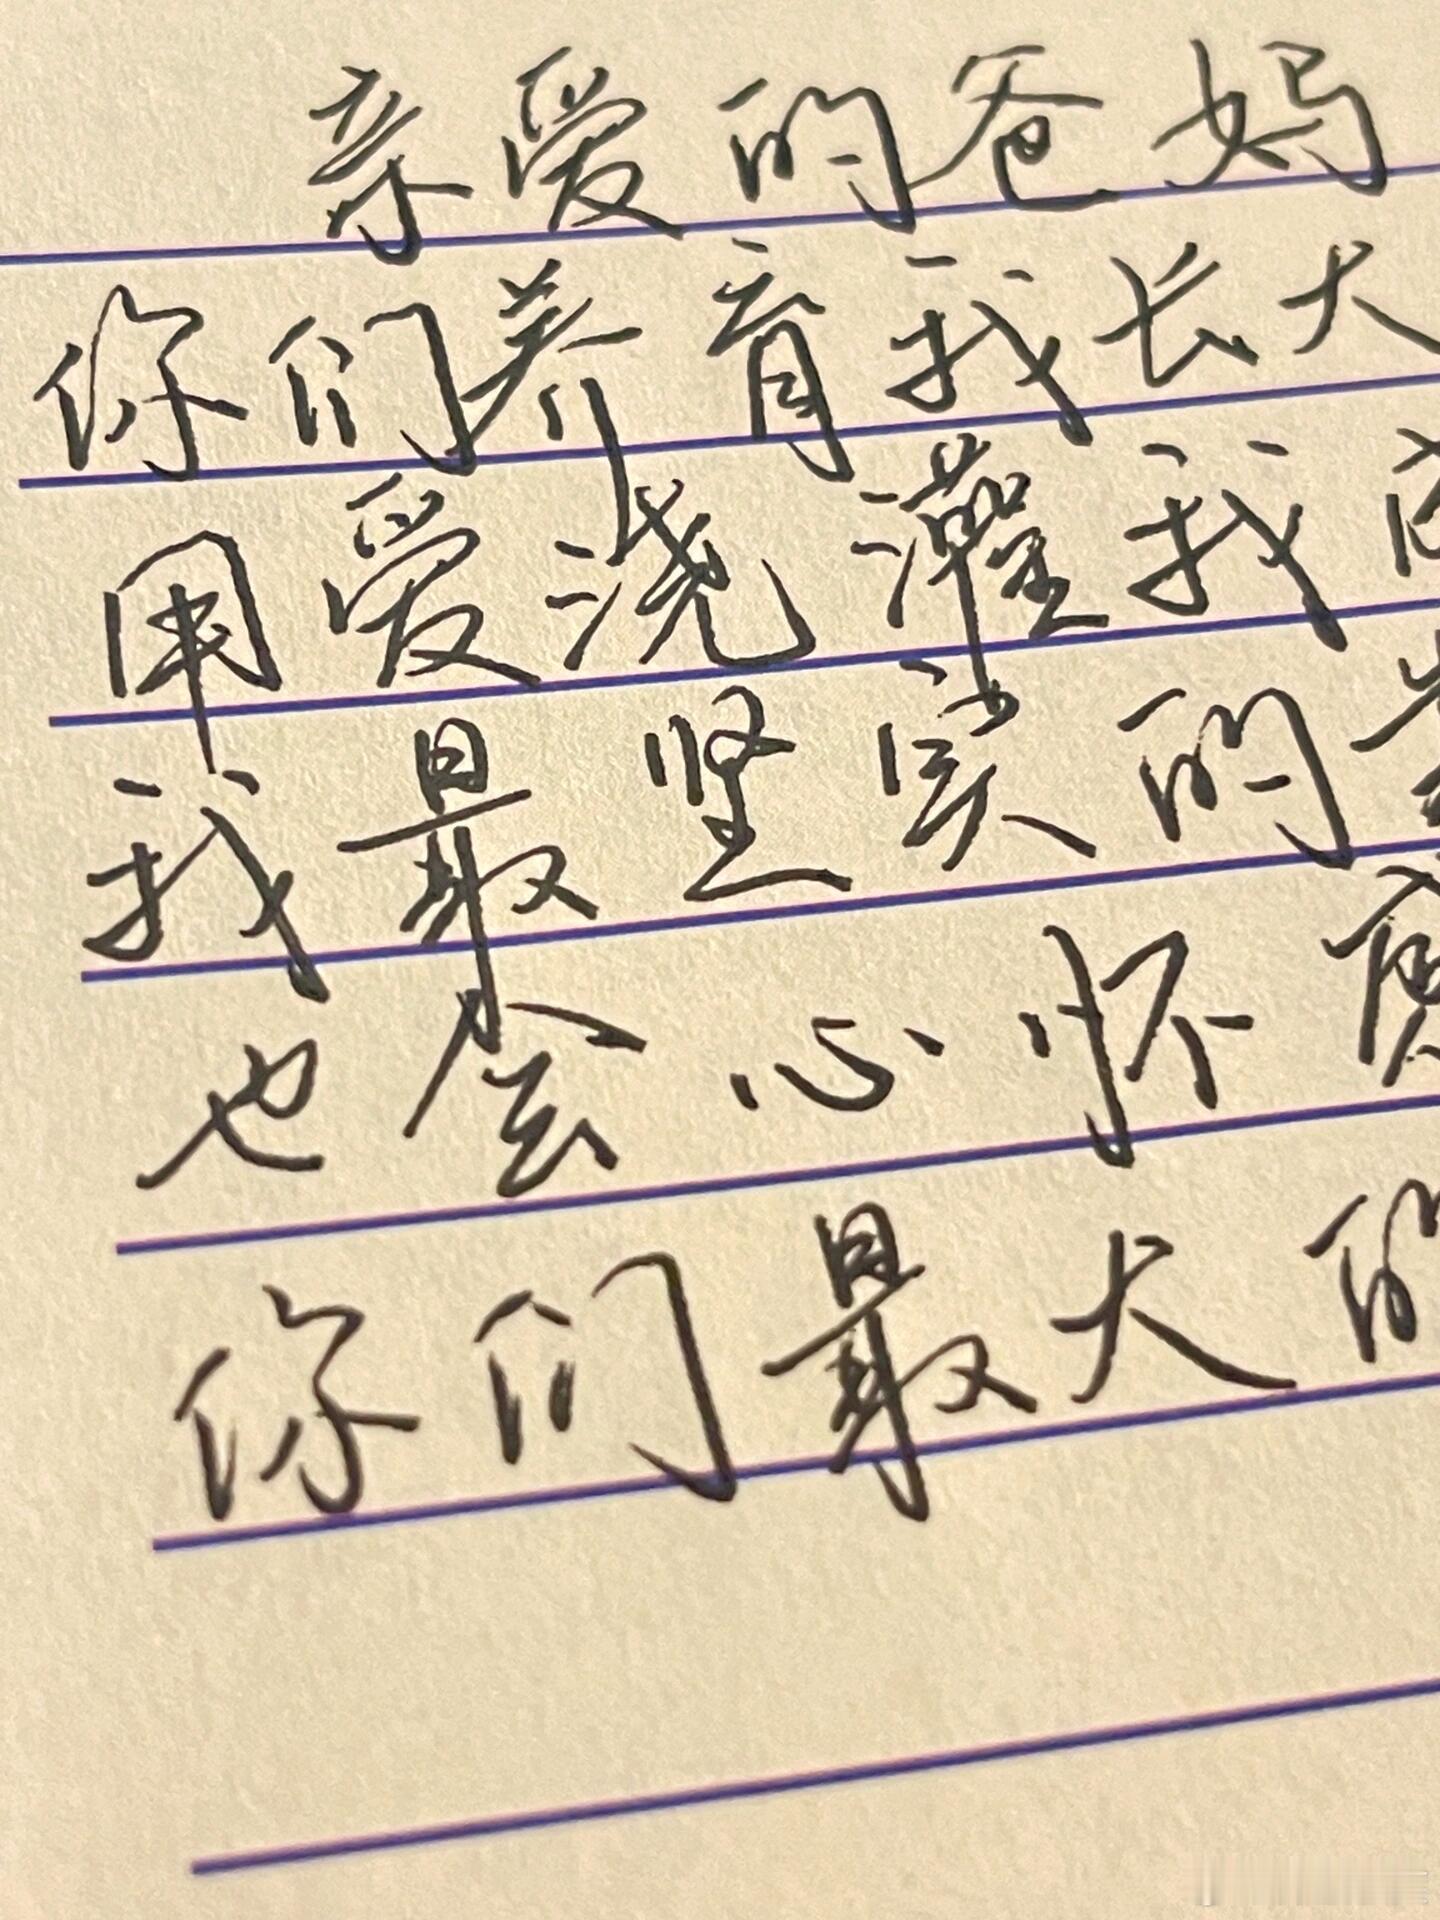 亲爱的爸妈
你们养育我长大
用爱浇灌我
我最坚实的
也会心怀
你们最大的